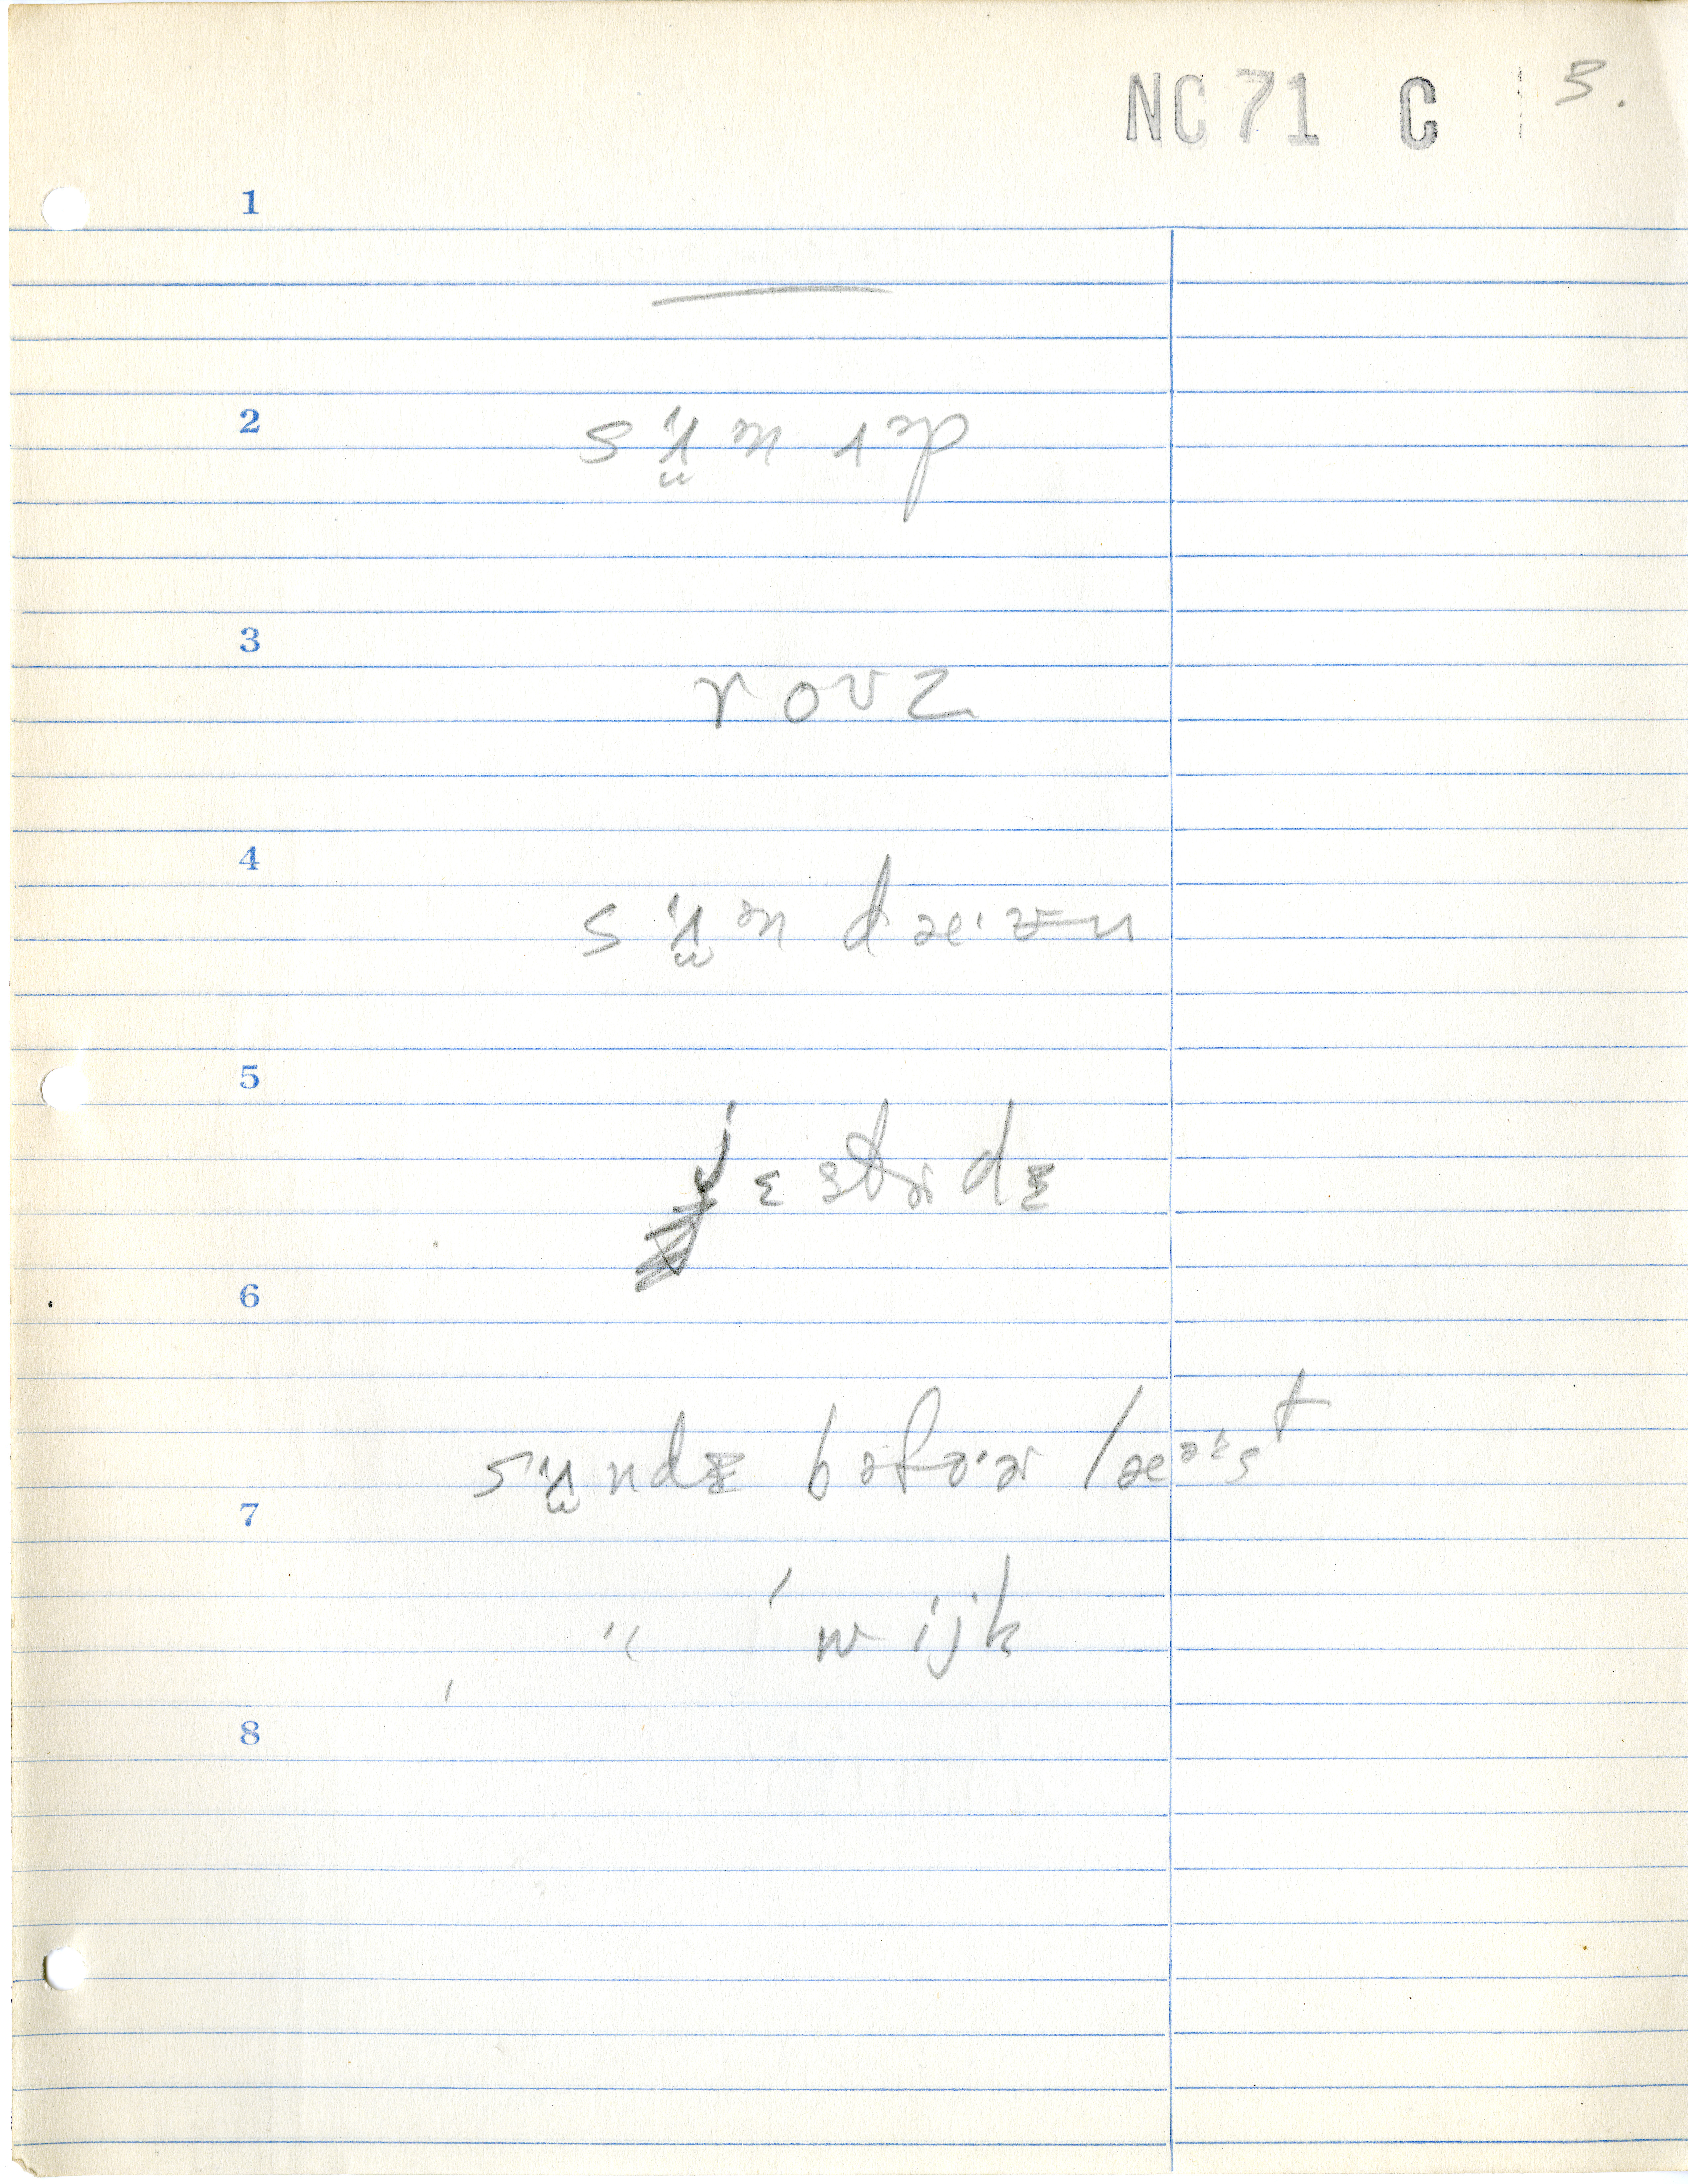 NC 71 C 3.
1
2
sʌ̈n ʌp
3
rouz
4
sʌ̈n dæ·ʊn
5
jɛstɚdɪ
6
sʌ̈ndɪ bəfo·ɚ læəst
7
" wijk
8